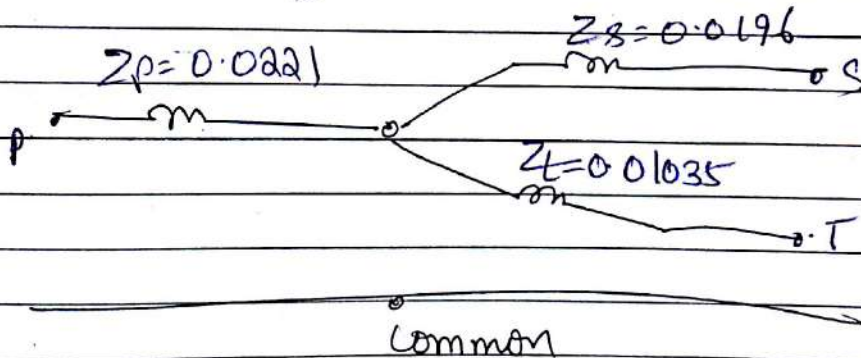 Zs = 0.0196
Zp = 0.0221
S
P
Zt = 0.01035
T
Common